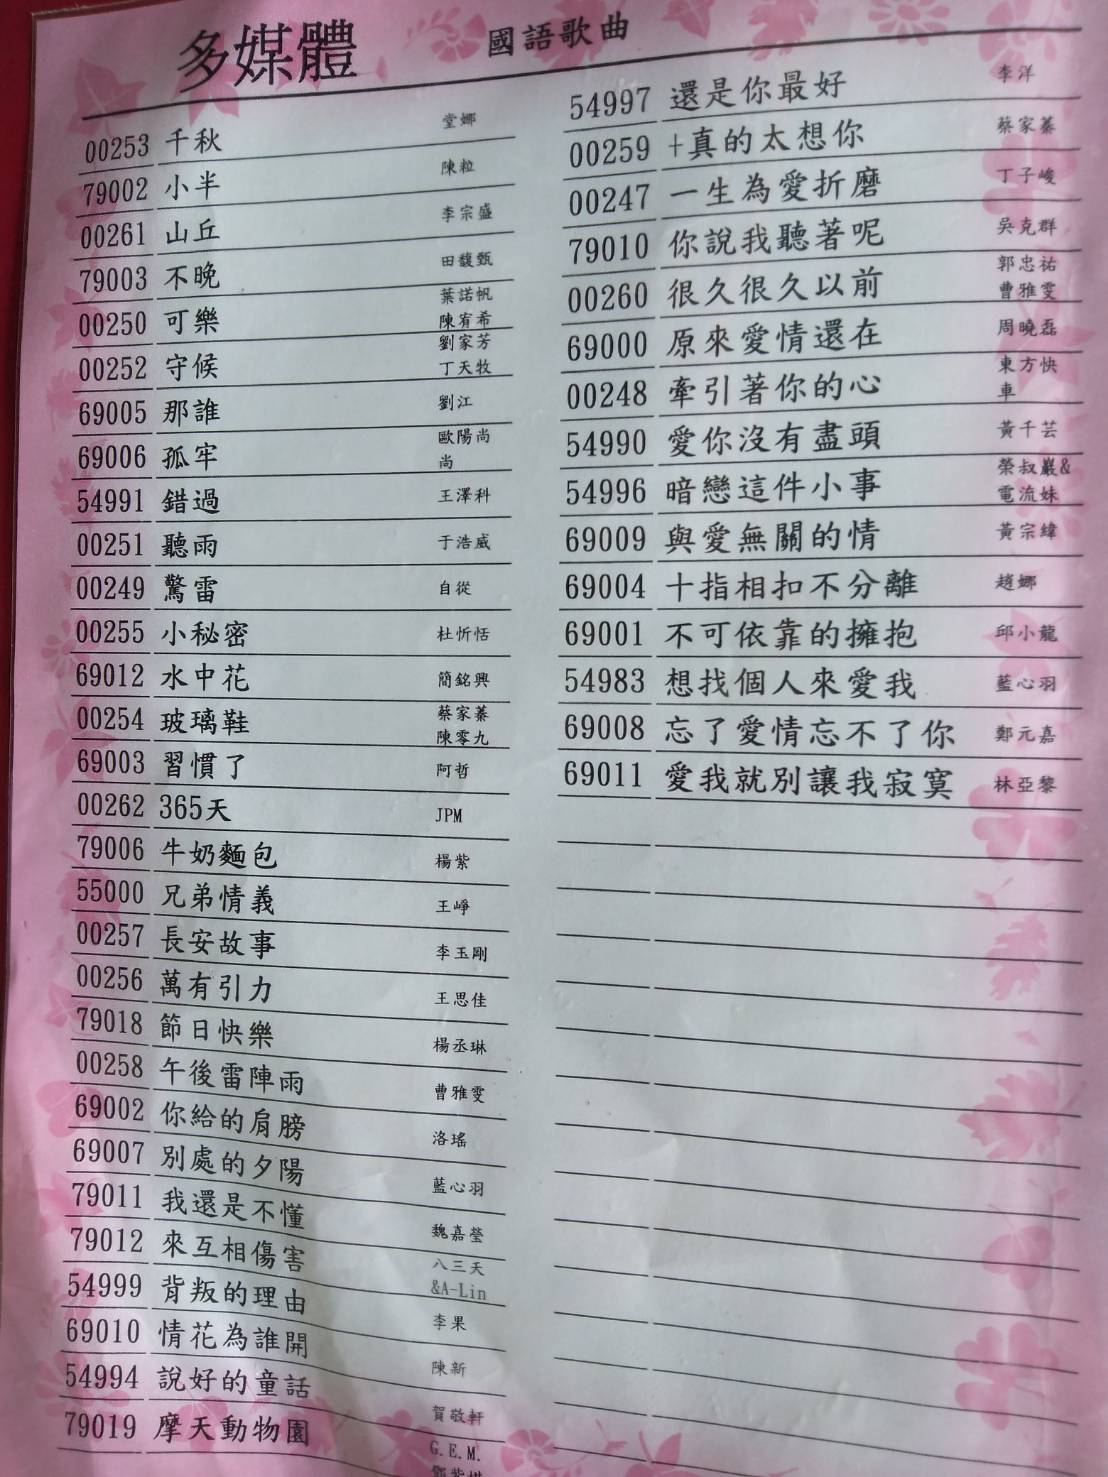 多媒體 國語歌曲
00253 千秋 堂娜
79002 小半 陳粒
00261 山丘 李宗盛
79003 不晚 田馥甄
00250 可樂 葉諾帆 陳宥希
00252 守候 劉家芳 丁天牧
69005 那誰 劉江
69006 孤牢 歐陽尚尚
54991 錯過 王澤科
00251 聽雨 于浩威
00249 驚雷 自從
00255 小秘密 杜忻恬
69012 水中花 簡銘興
00254 玻璃鞋 蔡家蓁 陳零九
69003 習慣了 阿哲
00262 365天 JPM
79006 牛奶麵包 楊紫
55000 兄弟情義 王崢
00257 長安故事 李玉剛
00256 萬有引力 王思佳
79018 節日快樂 楊丞琳
00258 午後雷陣雨 曹雅雯
69002 你給的肩膀 洛瑤
69007 別處的夕陽 藍心羽
79011 我還是不懂 魏嘉瑩
79012 來互相傷害 八三夭&A-Lin
54999 背叛的理由 李果
69010 情花為誰開 陳新
54994 說好的童話 賀敬軒
79019 摩天動物園 G.E.M.
54997 還是你最好 李洋
00259 +真的太想你 蔡家蓁
00247 一生為愛折磨 丁子峻
79010 你說我聽著呢 吳克群
00260 很久很久以前 郭忠祐 曹雅雯
69000 原來愛情還在 周曉磊
00248 牽引著你的心 東方快車
54990 愛你沒有盡頭 黃千芸
54996 暗戀這件小事 榮叔巖&電流妹
69009 與愛無關的情 黃宗緯
69004 十指相扣不分離 趙娜
69001 不可依靠的擁抱 邱小龍
54983 想找個人來愛我 藍心羽
69008 忘了愛情忘不了你 鄭元嘉
69011 愛我就別讓我寂寞 林亞黎